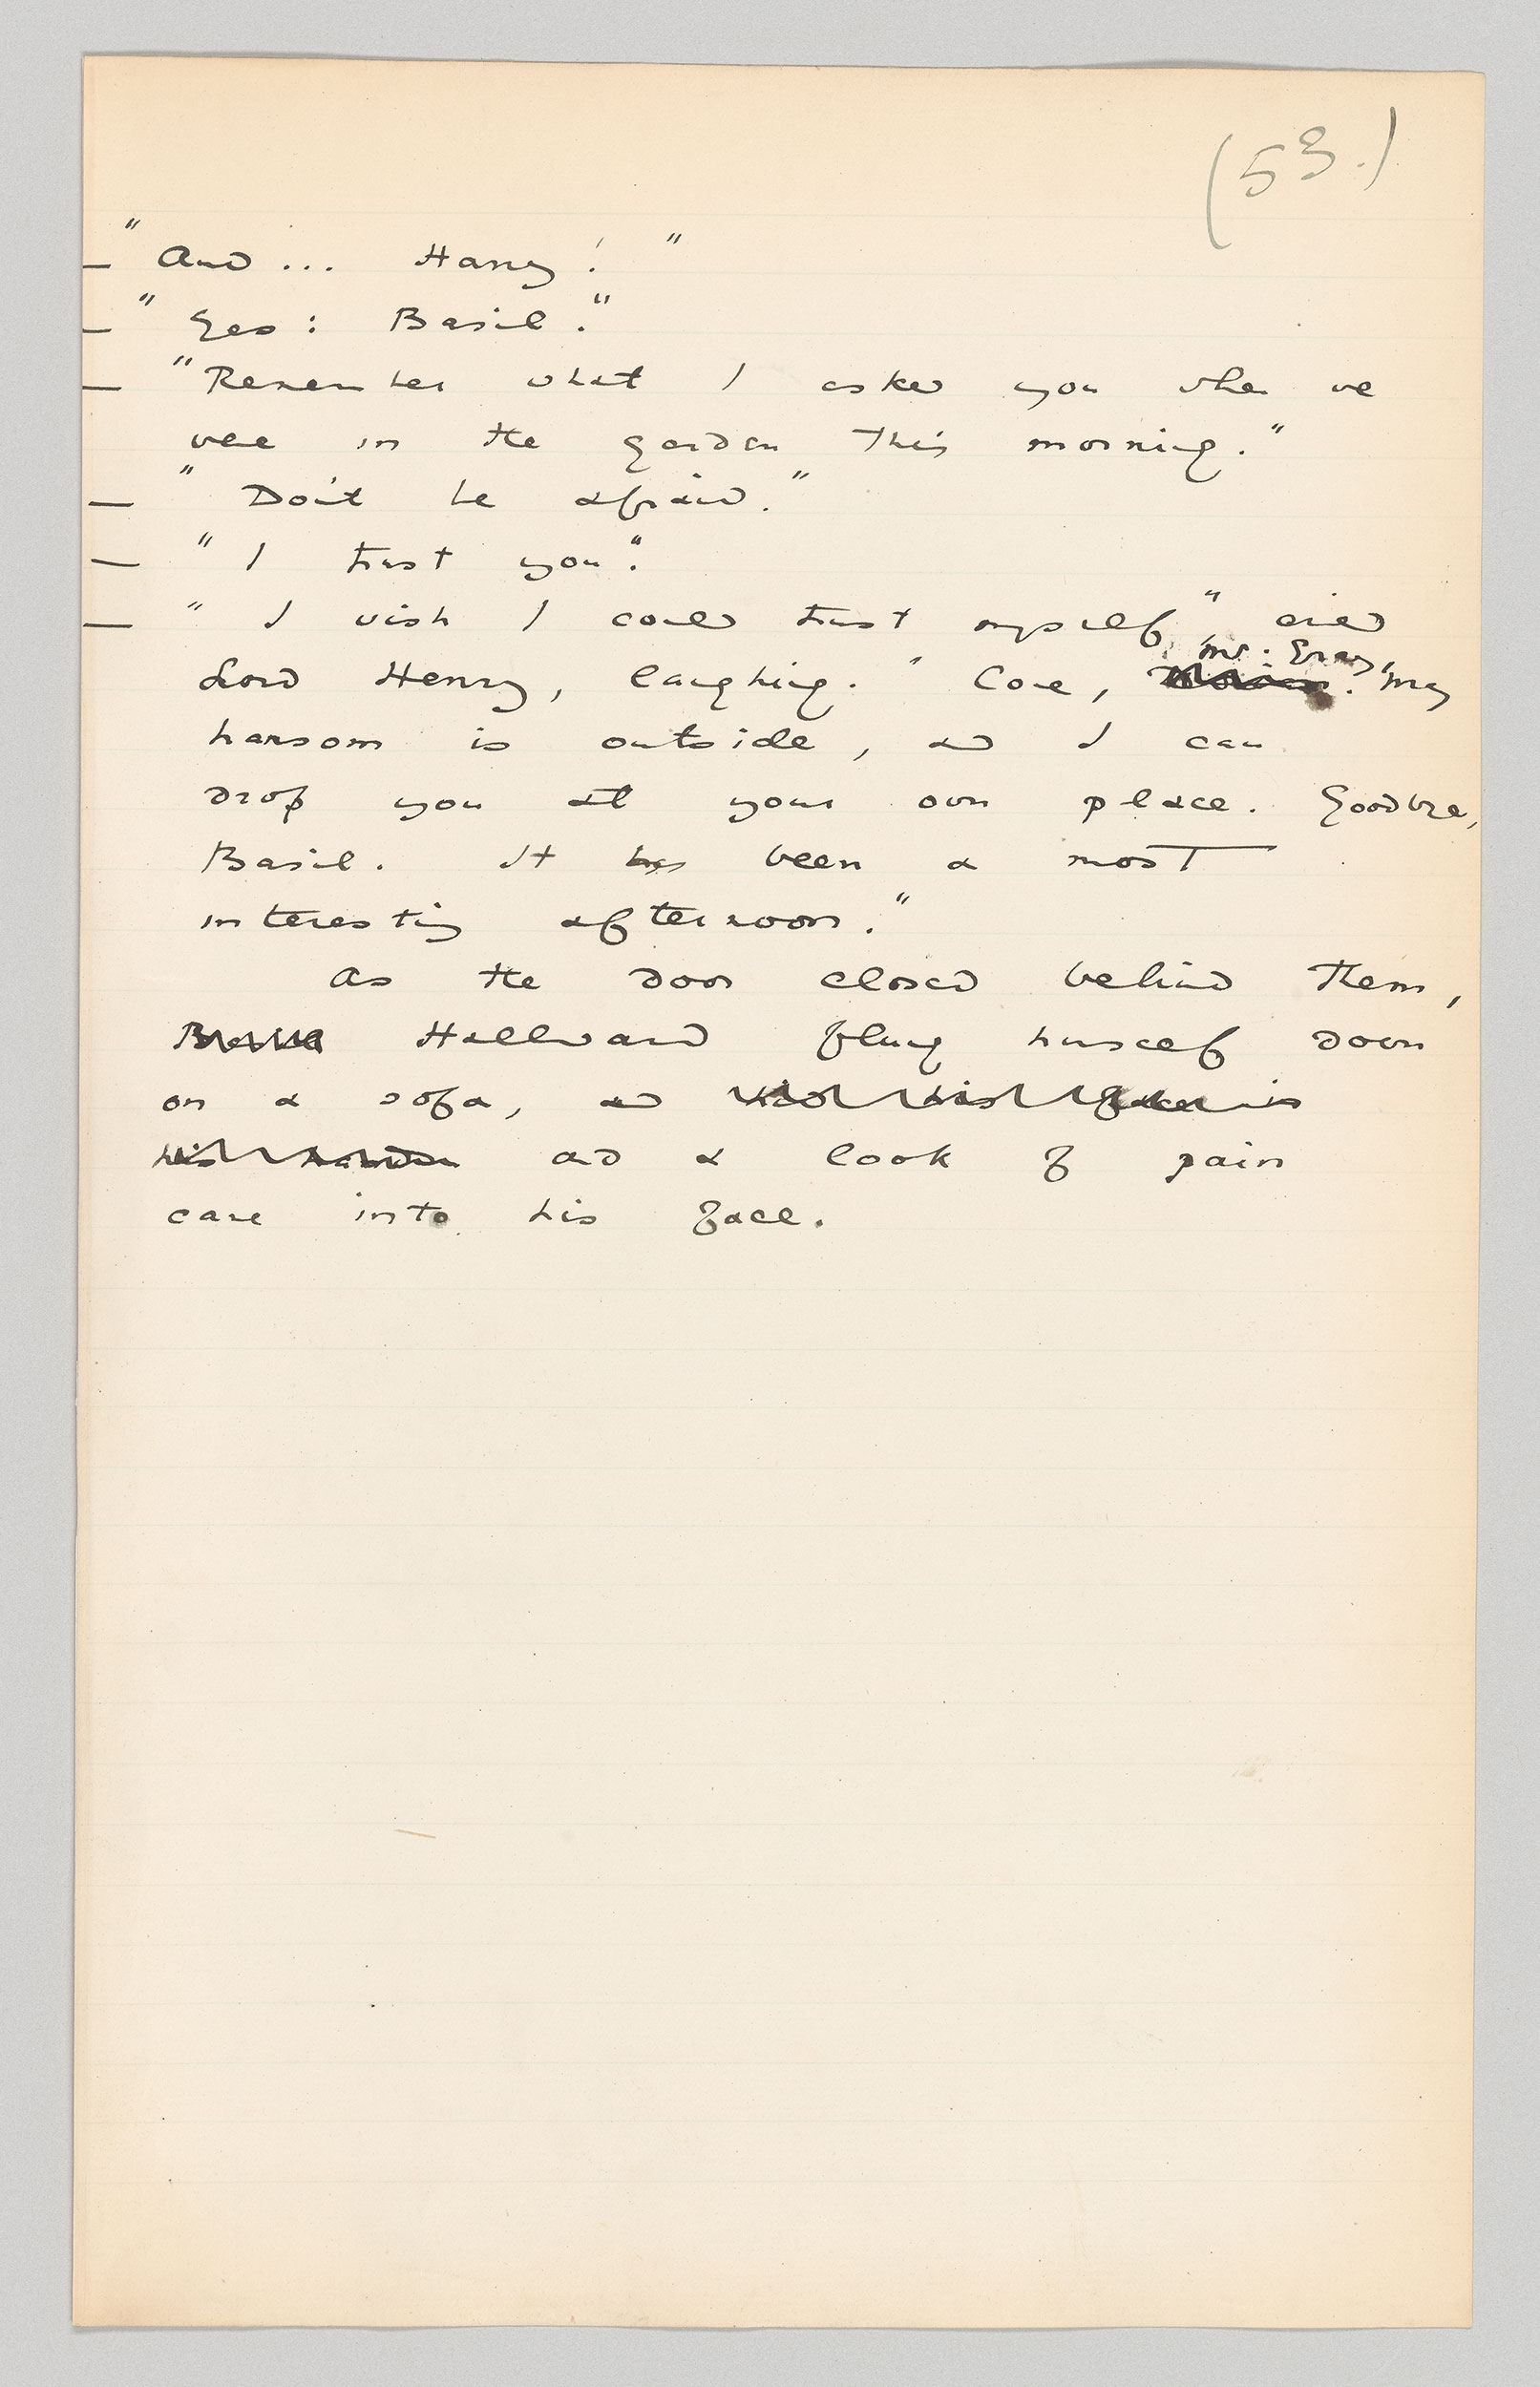 (53.)
— "And ... Harry!"
— "Yes: Basil."
— "Remember what I asked you when we
were in the garden this morning."
— "Don't be afraid."
— "I trust you".
— "I wish I could trust myself" cried
Mr. Gray,
Lord Henry, laughing. "Come, Dorian. my
hansom is outside, and I can
drop you at your own place. Goodbye,
Basil. It has been a most
interesting afternoon."
As the door closed behind them,
Basil Hallward flung himself down
on a sofa, and hid his face in
his hands and a look of pain
came into his face.